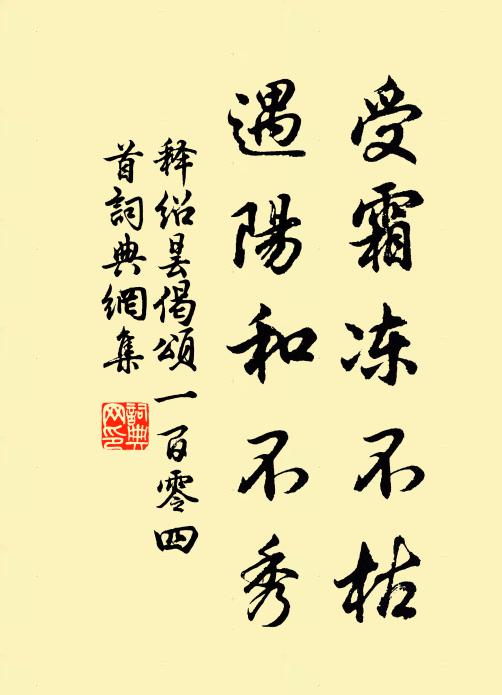 受霜冻不枯
遇陽和不秀
释绍昙偈頌一百零四
首詞典網集
詞典网印